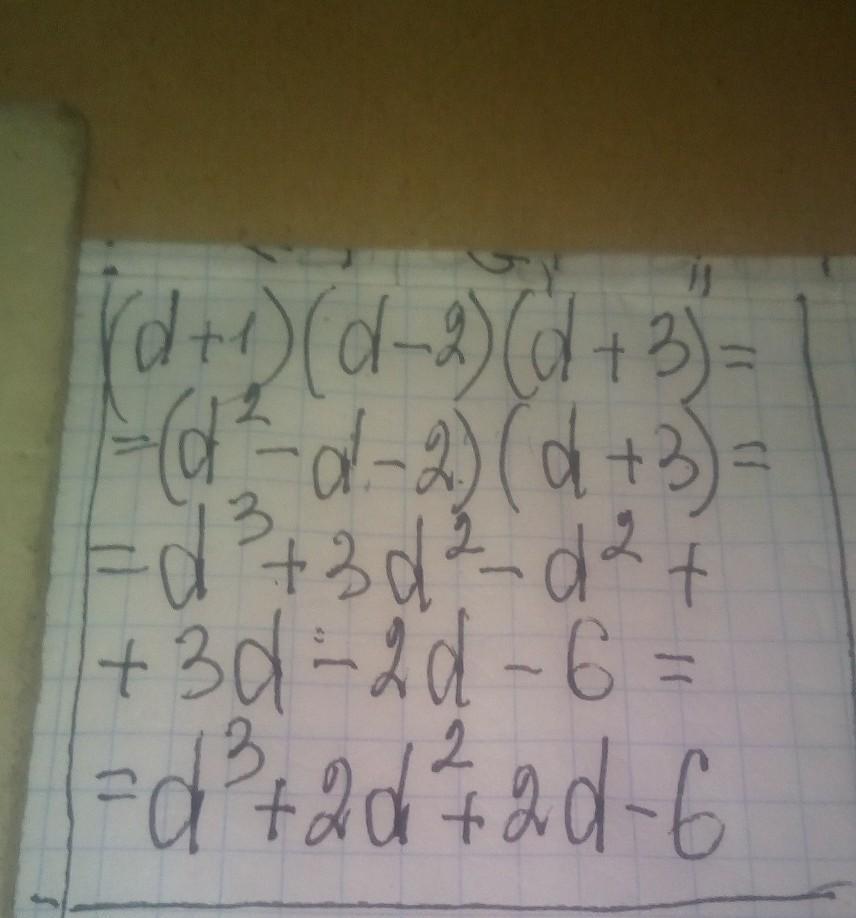 (d+1)(d-2)(d+3)=
=(d²-d-2)(d+3)=
=d³+3d²-d²+
+3d-2d-6=
=d³+2d²+2d-6